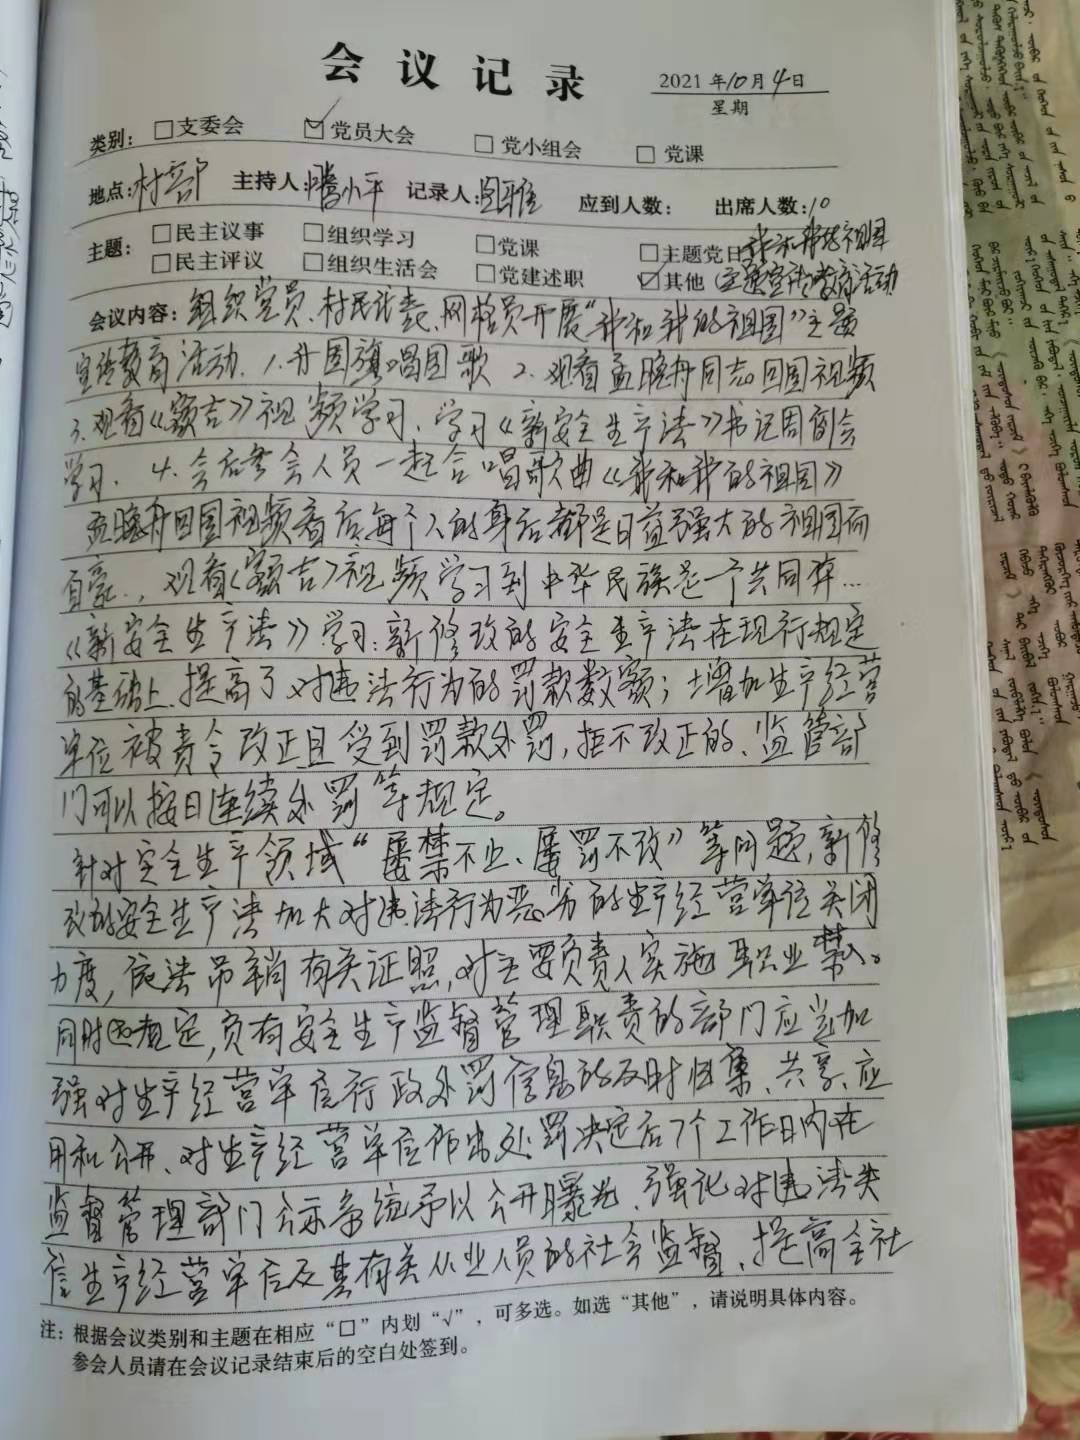 会议记录
2021年10月4日
星期
类别：□支委会 ☑党员大会 □党小组会 □党课
地点：村部 主持人：腾小平 记录人：图雅 应到人数： 出席人数：10
主题：□民主议事 □组织学习 □党课 □主题党日 我和我的祖国
□民主评议 □组织生活会 □党建述职 ☑其他（主题宣传教育活动
会议内容：组织党员、村民代表、网格员开展“我和我的祖国”主题
宣传教育活动. 1.升国旗唱国歌 2.观看孟晚舟同志回国视频
3.观看《额吉》视频学习、学习《新安全生产法》书记周例会
学习、4.会后参会人员一起合唱歌曲《我和我的祖国》
孟晚舟回国视频看后每个人的身后都是日益强大的祖国而
自豪..，观看《额吉》视频学习到中华民族是一个共同体...
《新安全生产法》学习：新修改的安全生产法在现行规定
的基础上，提高了对违法行为的罚款数额；增加生产经营
单位被责令改正且受到罚款处罚，拒不改正的、监管部
门可以按日连续处罚等规定。
针对安全生产领域“屡禁不止、屡罚不改”等问题，新修
改的安全生产法加大对违法行为恶劣的生产经营单位关闭
力度，依法吊销有关证照，对主要负责人实施职业禁入。
同时还规定，负有安全生产监督管理职责的部门应当加
强对生产经营单位行政处罚信息的及时归集、共享、应
用和公开、对生产经营单位作出处罚决定后7个工作日内在
监督管理部门公示系统予以公开曝光、强化对违法失
信生产经营单位及其有关从业人员的社会监督、提高全社
注：根据会议类别和主题在相应“□”内划“√”，可多选。如选“其他”，请说明具体内容。
参会人员请在会议记录结束后的空白处签到。